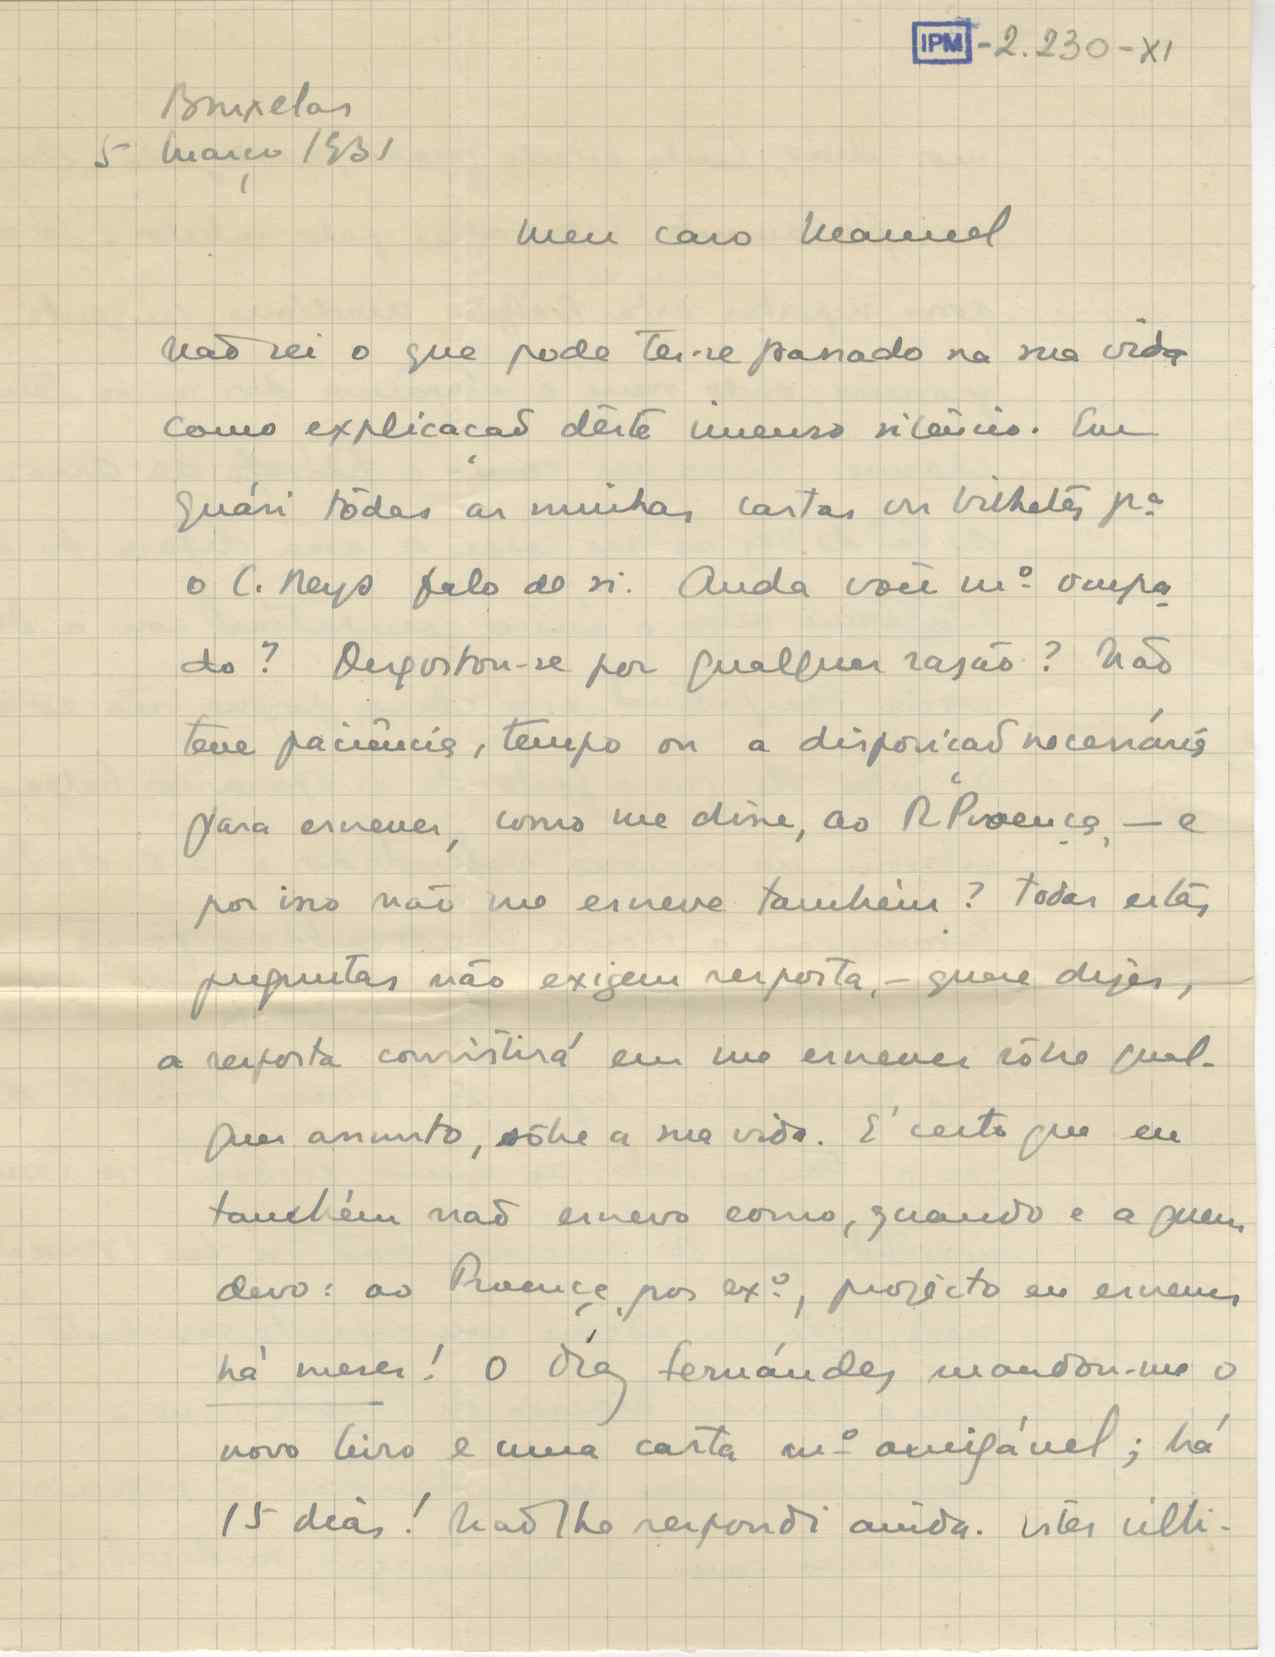 IPM -2.230-XI
Bruxelas
5 Março 1931
Meu caro Manuel
Não sei o que pode ter-se passado na sua vida
como explicação dêste imenso silêncio. Em
quási tôdas as minhas cartas ou bilhetes pª
o C. Reys falo de si. Anda você mº ocupa-
do? Desgostou-se por qualquer rasão? Não
teve paciência, tempo ou a disposição necessária
para escrever, como me disse, ao R Proença, — e
por isso não me escreve também? Todas estas
preguntas não exigem resposta, — quere dizer,
a resposta consistirá em me escrever sôbre qual-
quer assunto, sôbre a sua vida. É certo que eu
também não escrevo como, quando e a quem
devo: ao Proença, por exº, projécto eu escrever
há meses! O Díaz Fernández mandou-me o
novo livro e uma carta mº amigável; há
15 dias! Não lhe respondi ainda. Estes últi-